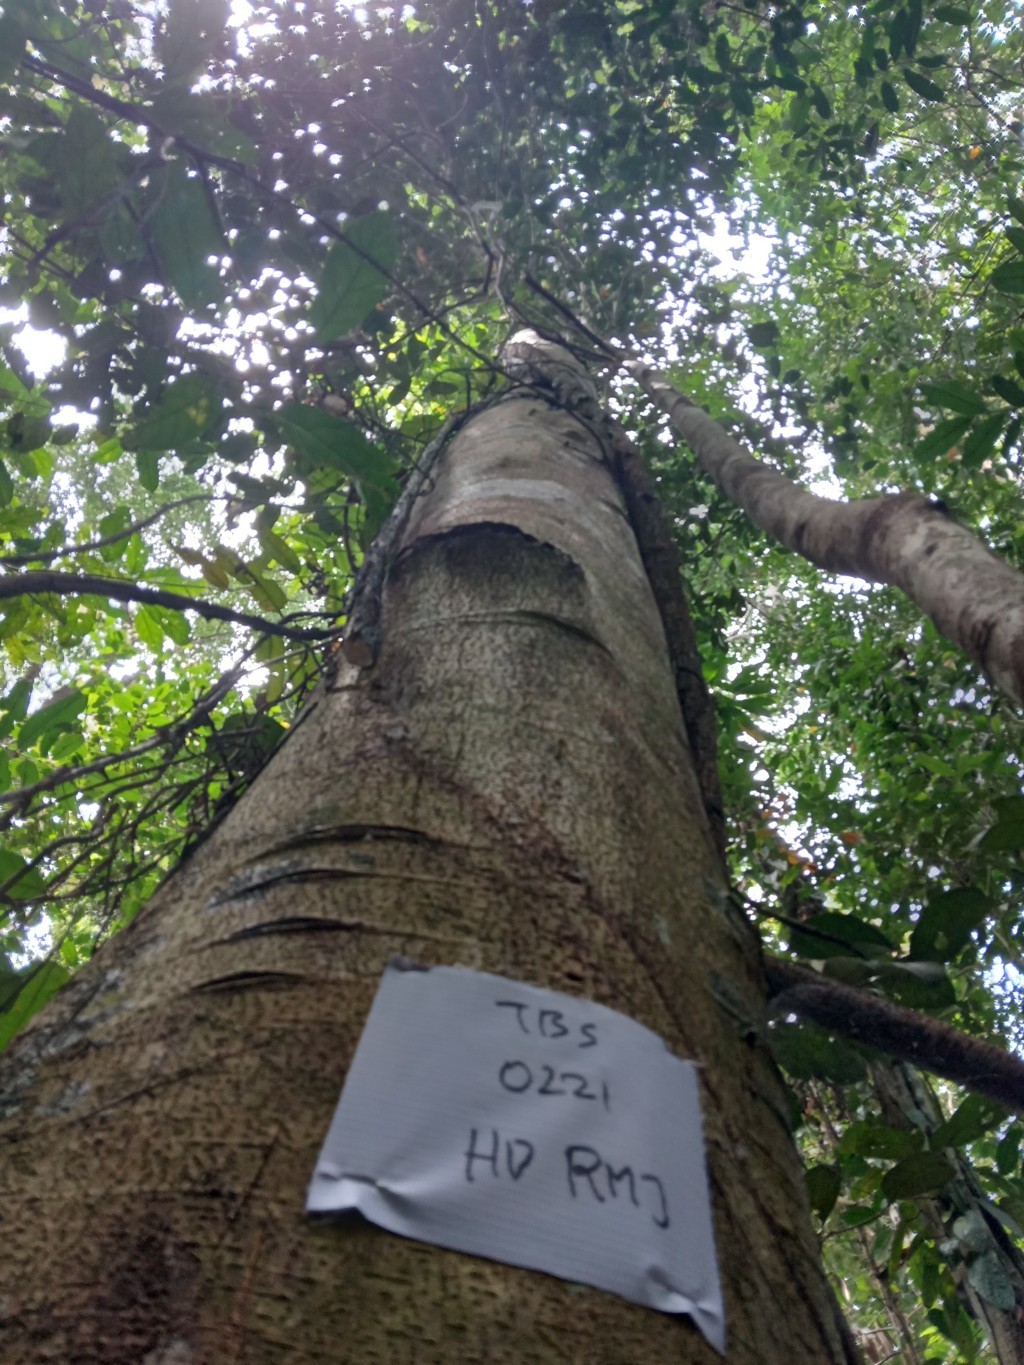 TBS
0221
HD RMJ